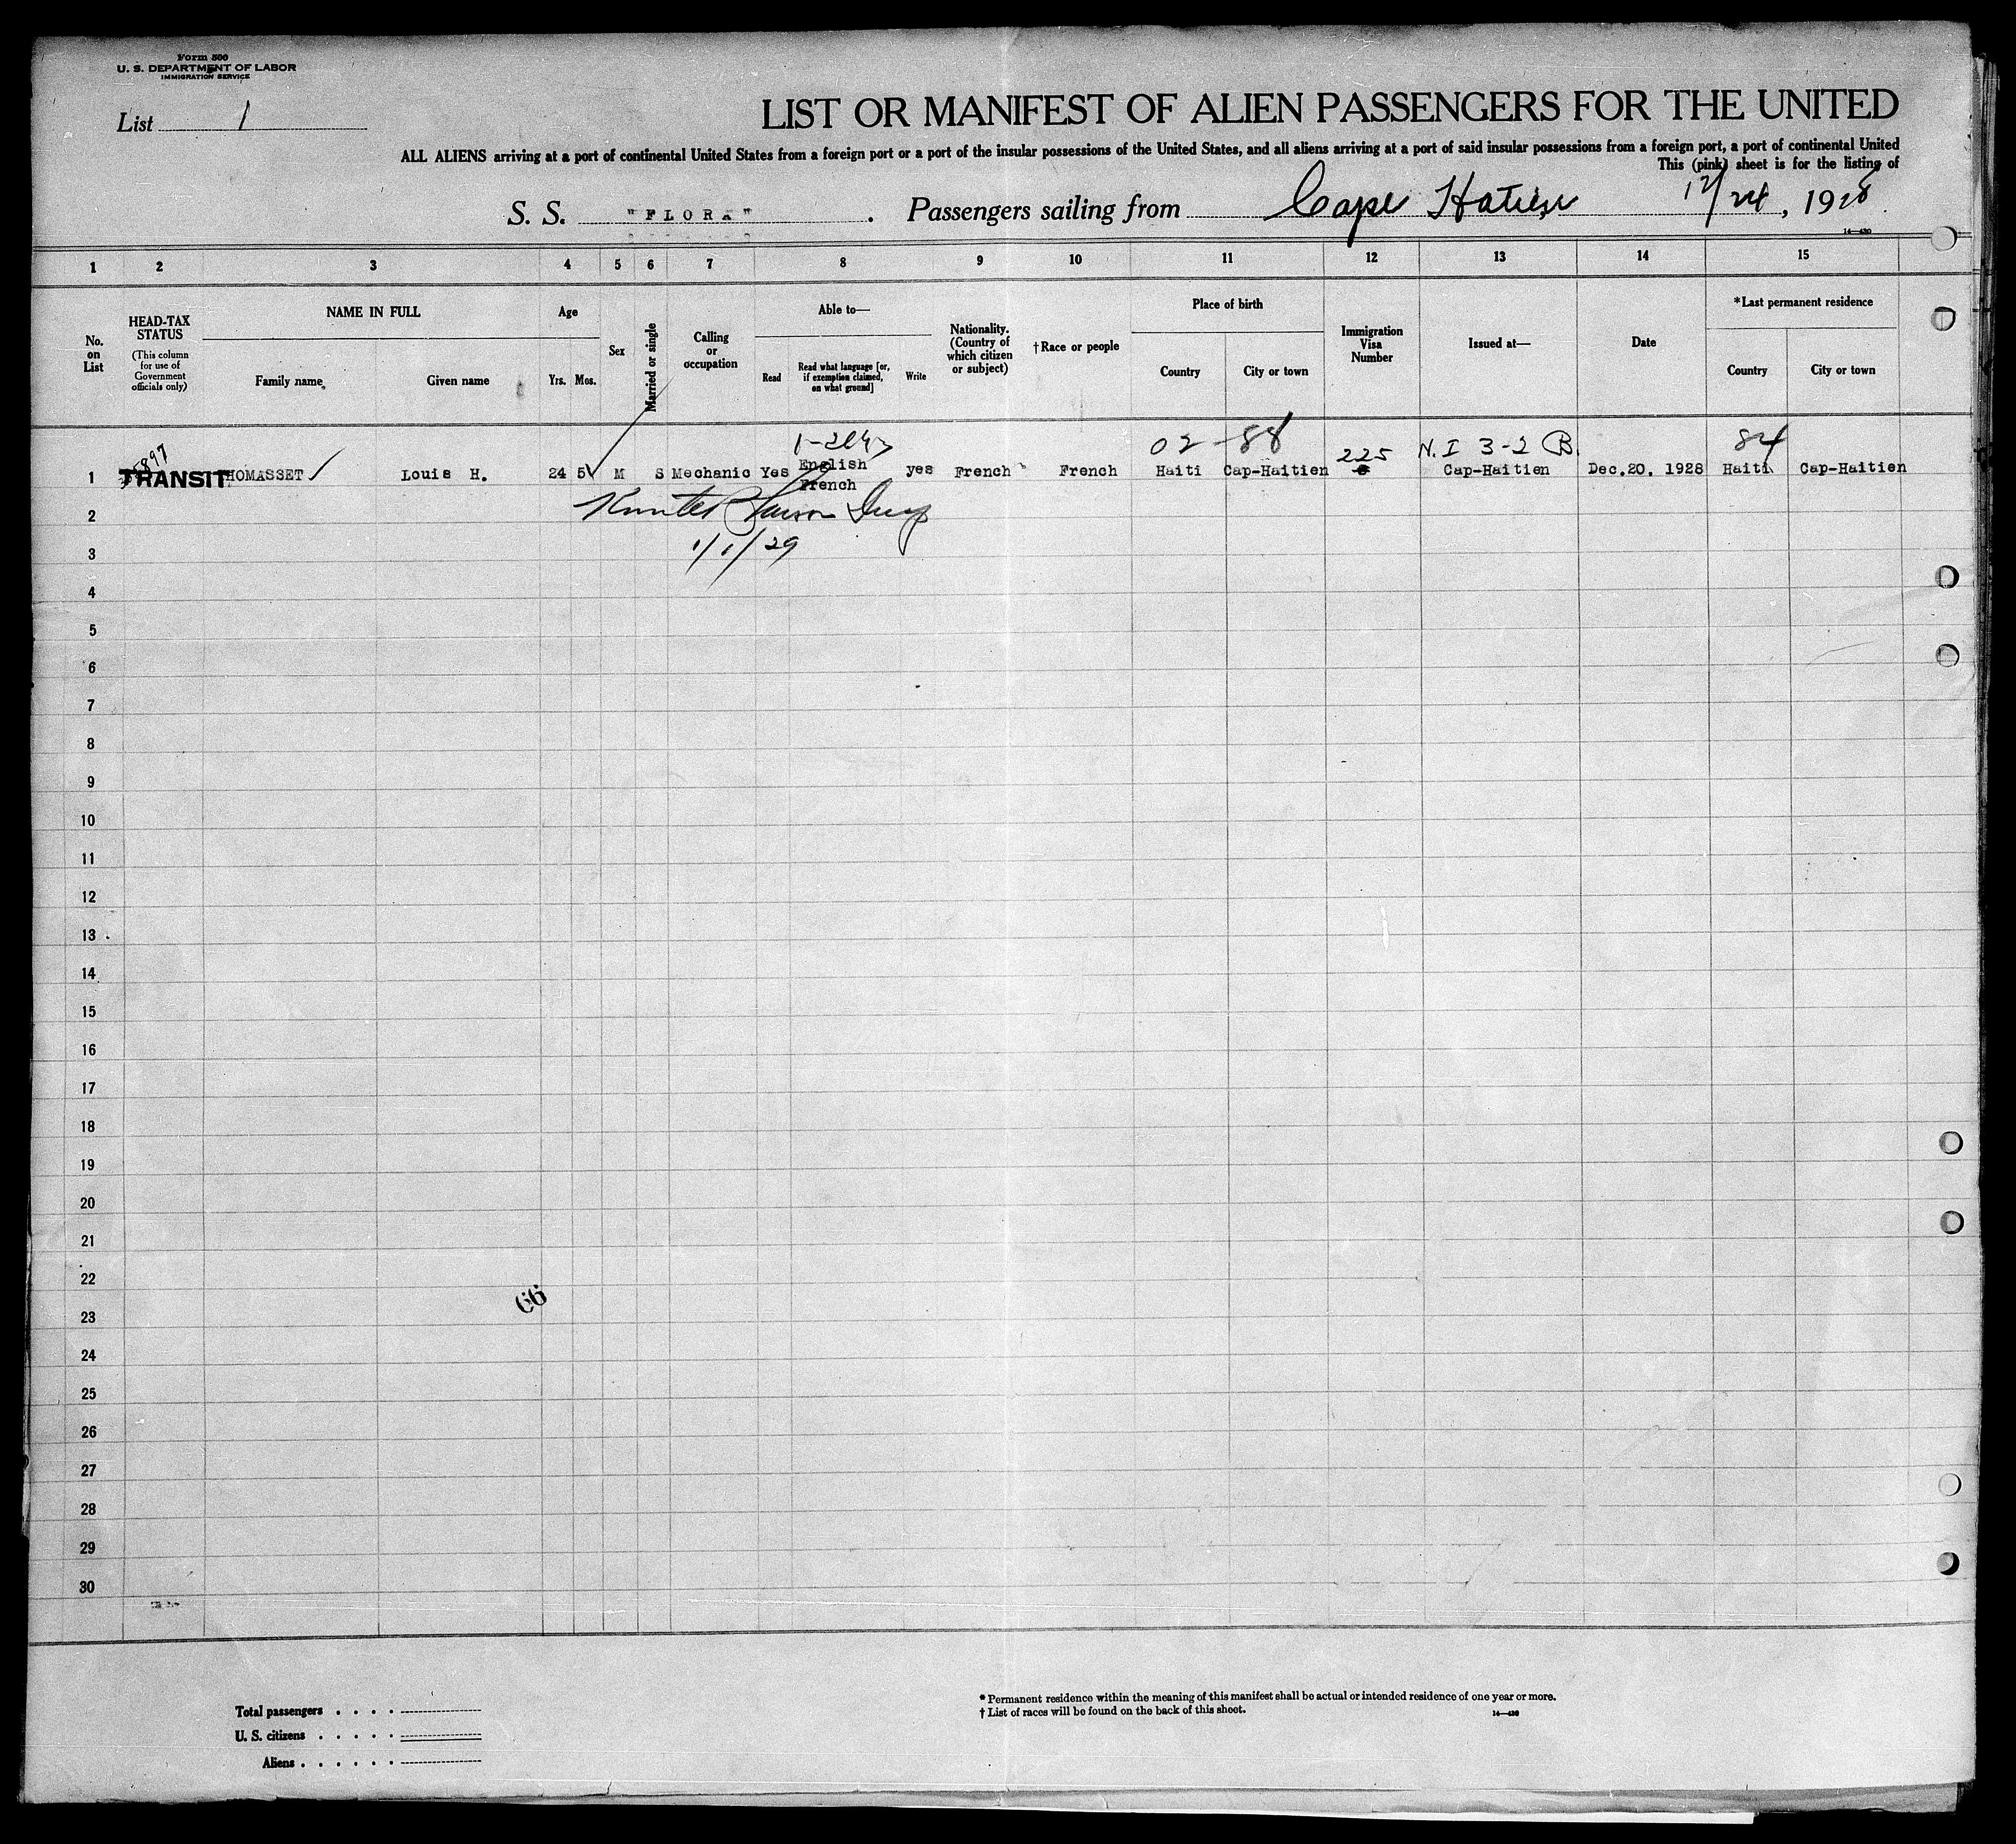 Form 500
U. S. DEPARTMENT OF LABOR
IMMIGRATION SERVICE
List 1
LIST OR MANIFEST OF ALIEN PASSENGERS FOR THE UNITED
ALL ALIENS arriving at a port of continental United States from a foreign port or a port of the insular possessions of the United States, and all aliens arriving at a port of said insular possessions from a foreign port, a port of continental United
This (pink) sheet is for the listing of
S. S. "FLORA". Passengers sailing from Cape Hatien 12/24, 1928
14—430
1 2 3 4 5 6 7 8 9 10 11 12 13 14 15
No. on List
HEAD-TAX STATUS
(This column for use of Government officials only)
NAME IN FULL
Family name
Given name
Age
Yrs. Mos.
Sex
Married or single
Calling or occupation
Able to—
Read
Read what language [or, if exemption claimed, on what ground]
Write
Nationality. (Country of which citizen or subject)
†Race or people
Place of birth
Country
City or town
Immigration Visa Number
Issued at—
Date
*Last permanent residence
Country
City or town
02 88 225 N.I 3-2 B 84
1 TRANSIT HOMASSET Louis H. 24 5 M S Mechanic Yes English French yes French French Haiti Cap-Haitien Cap-Haitien Dec.20, 1928 Haiti Cap-Haitien
2
1/1/29
3
4
5
6
7
8
9
10
11
12
13
14
15
16
17
18
19
20
21
22
66
23
24
25
26
27
28
29
30
Total passengers
U. S. citizens
Aliens
* Permanent residence within the meaning of this manifest shall be actual or intended residence of one year or more.
† List of races will be found on the back of this sheet.
14—430